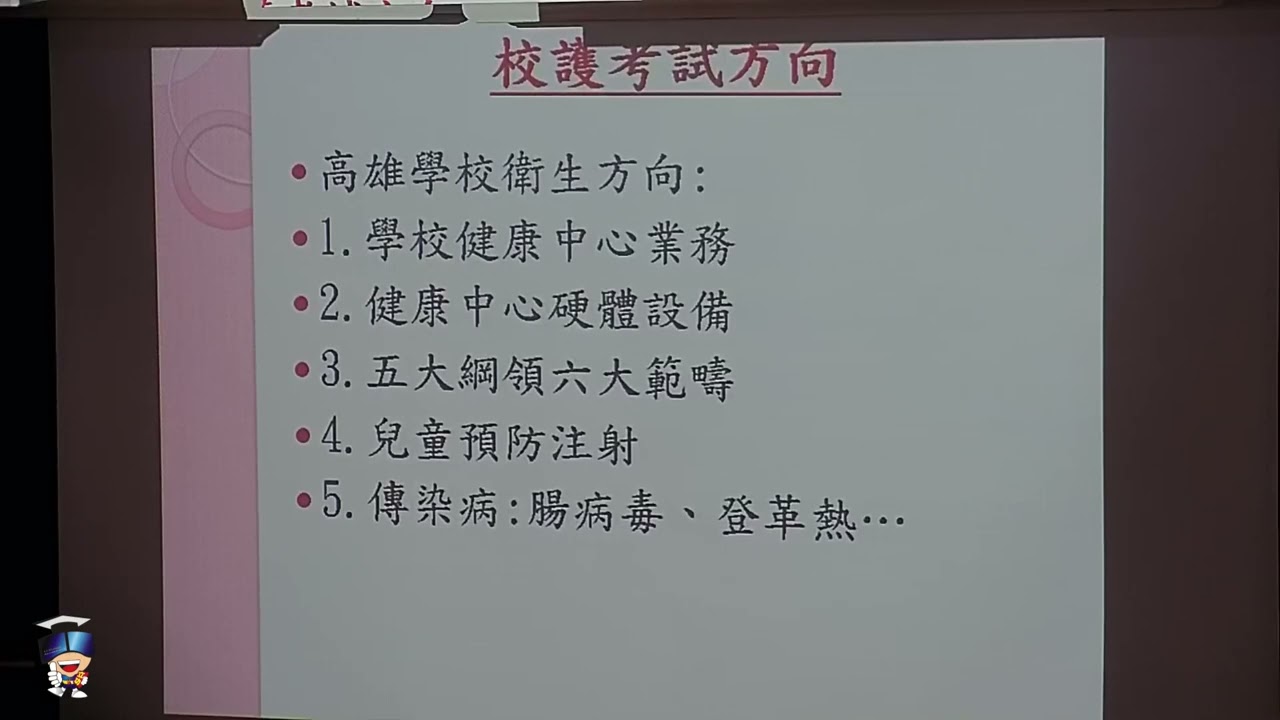 校護考試方向
• 高雄學校衛生方向:
• 1. 學校健康中心業務
• 2. 健康中心硬體設備
• 3. 五大綱領六大範疇
• 4. 兒童預防注射
• 5. 傳染病:腸病毒、登革熱…